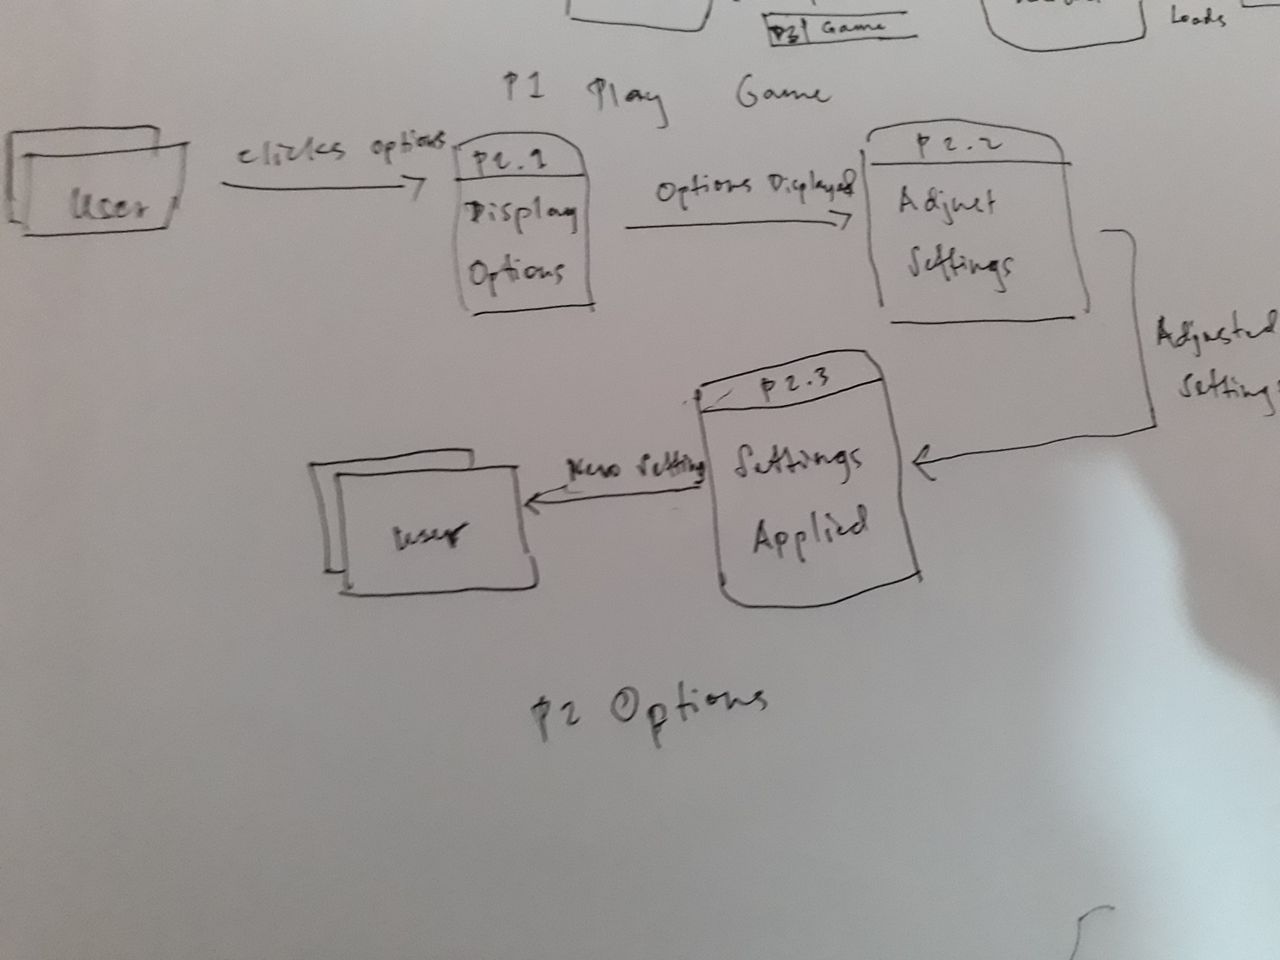 Game
Loads
P1 Play Game
User
clicks options
P2.1
Display
Options
Options Displayed
P2.2
Adjust
Settings
Adjusted
Settings
P2.3
Settings
Applied
New Setting
User
P2 Options